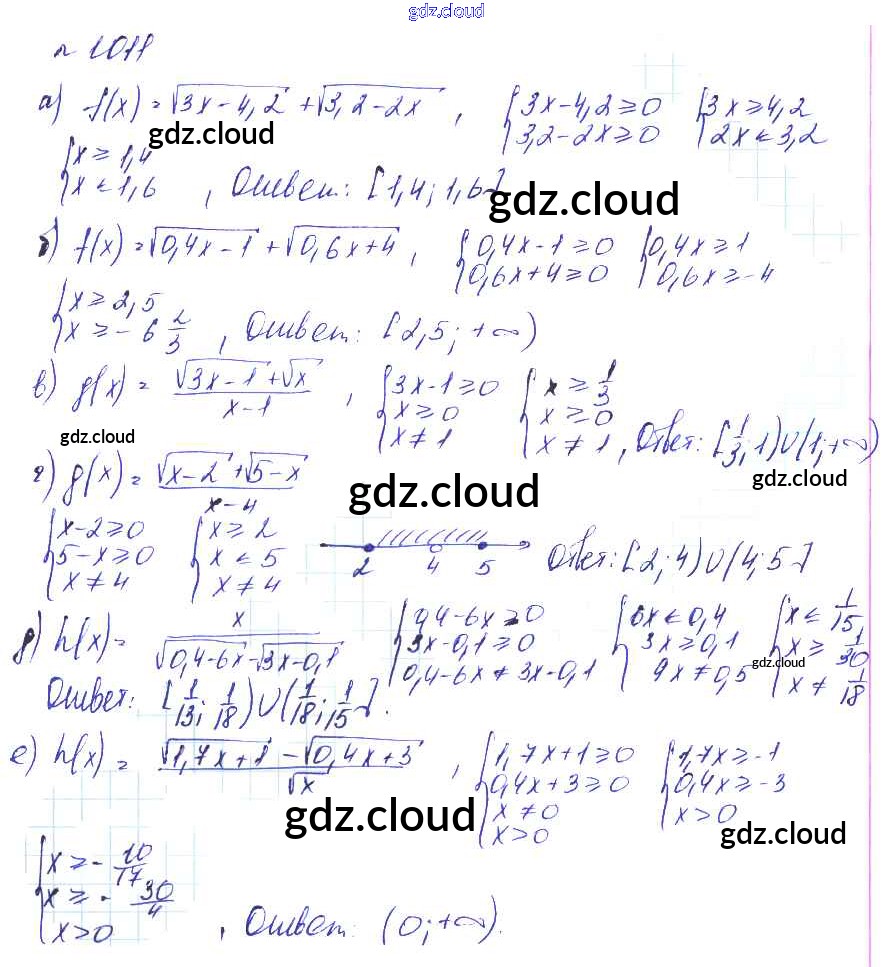 gdz.cloud
№ 1011
а) f(x) = √3x-4,2 + √3,2-2x , { 3x-4,2 ≥ 0 { 3x ≥ 4,2
3,2-2x ≥ 0 2x ≤ 3,2
gdz.cloud
{ x ≥ 1,4
x ≤ 1,6 , Ответ: [1,4; 1,6]
gdz.cloud
б) f(x) = √0,4x-1 + √0,6x+4 , { 0,4x-1 ≥ 0 { 0,4x ≥ 1
0,6x+4 ≥ 0 0,6x ≥ -4
{ x ≥ 2,5
x ≥ -6 2/3 , Ответ: [2,5; +∞)
в) g(x) = (√3x-1 + √x)/(x-1) , { 3x-1 ≥ 0 { x ≥ 1/3
x ≥ 0 x ≥ 0
x ≠ 1 x ≠ 1 , Ответ: [1/3; 1)∪(1; +∞)
gdz.cloud
gdz.cloud
г) g(x) = (√x-2 + √5-x)/(x-4)
gdz.cloud
{ x-2 ≥ 0 { x ≥ 2
5-x ≥ 0 x ≤ 5
x ≠ 4 x ≠ 4
2 4 5
Ответ: [2; 4)∪(4; 5]
д) h(x) = x/(√0,4-6x - √3x-0,1) { 0,4-6x ≥ 0 { 6x ≤ 0,4 { x ≤ 1/15
3x-0,1 ≥ 0 3x ≥ 0,1 x ≥ 1/30
0,4-6x ≠ 3x-0,1 9x ≠ 0,5 x ≠ 1/18
gdz.cloud
Ответ: [1/13; 1/18)∪(1/18; 1/15].
е) h(x) = (√1,7x+1 - √0,4x+3)/√x , { 1,7x+1 ≥ 0 { 1,7x ≥ -1
0,4x+3 ≥ 0 0,4x ≥ -3
x ≠ 0 x > 0
x > 0
gdz.cloud
gdz.cloud
{ x ≥ - 10/17
x ≥ - 30/4
x > 0 , Ответ: (0; +∞).